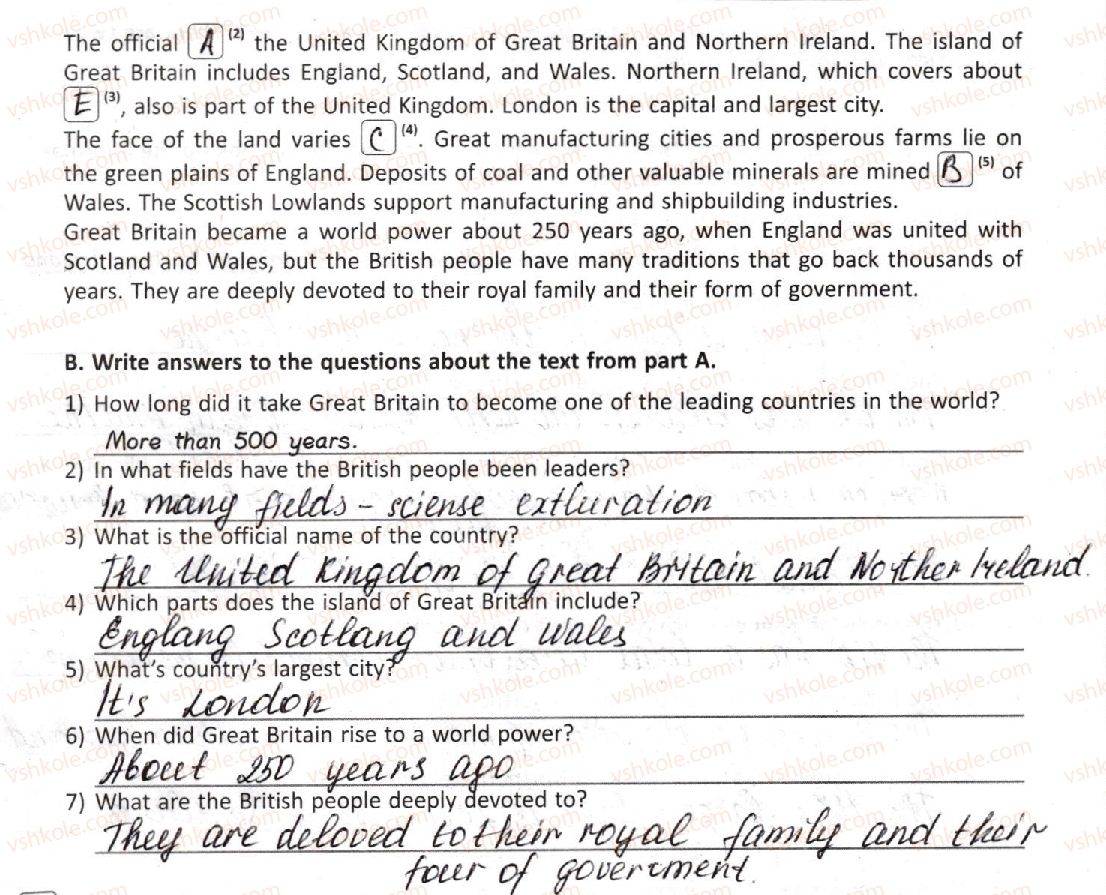 The official A (2) the United Kingdom of Great Britain and Northern Ireland. The island of
Great Britain includes England, Scotland, and Wales. Northern Ireland, which covers about
E (3), also is part of the United Kingdom. London is the capital and largest city.
The face of the land varies C (4). Great manufacturing cities and prosperous farms lie on
the green plains of England. Deposits of coal and other valuable minerals are mined B (5) of
Wales. The Scottish Lowlands support manufacturing and shipbuilding industries.
Great Britain became a world power about 250 years ago, when England was united with
Scotland and Wales, but the British people have many traditions that go back thousands of
years. They are deeply devoted to their royal family and their form of government.
B. Write answers to the questions about the text from part A.
1) How long did it take Great Britain to become one of the leading countries in the world?
More than 500 years.
2) In what fields have the British people been leaders?
In many fields - sciense extluration
3) What is the official name of the country?
The United Kingdom of Great Britain and Norther Ireland.
4) Which parts does the island of Great Britain include?
Englang Scotlang and Wales
5) What's country's largest city?
It's London
6) When did Great Britain rise to a world power?
About 250 years ago
7) What are the British people deeply devoted to?
They are deloved to their royal family and their
four of goverement.
vshkole.com